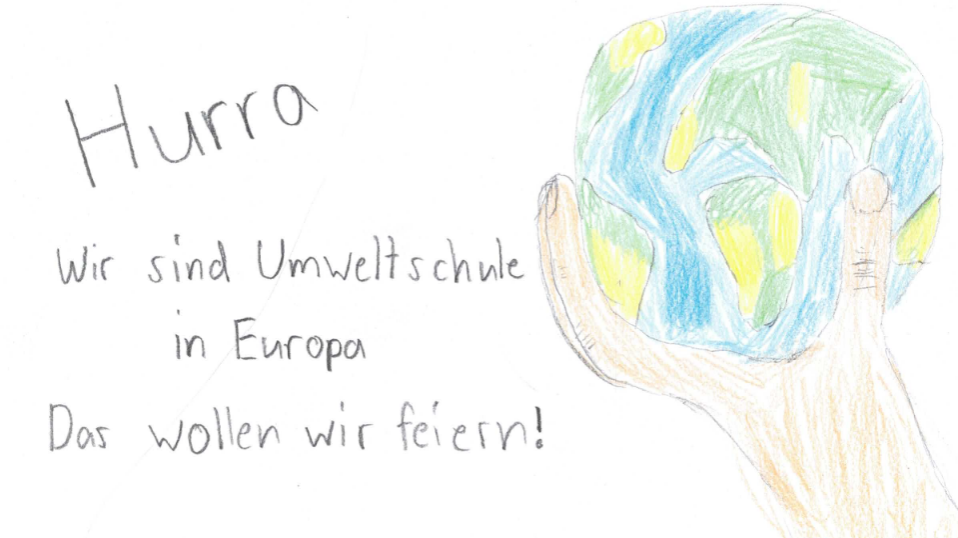 Hurra
Wir sind Umweltschule
in Europa
Das wollen wir feiern!